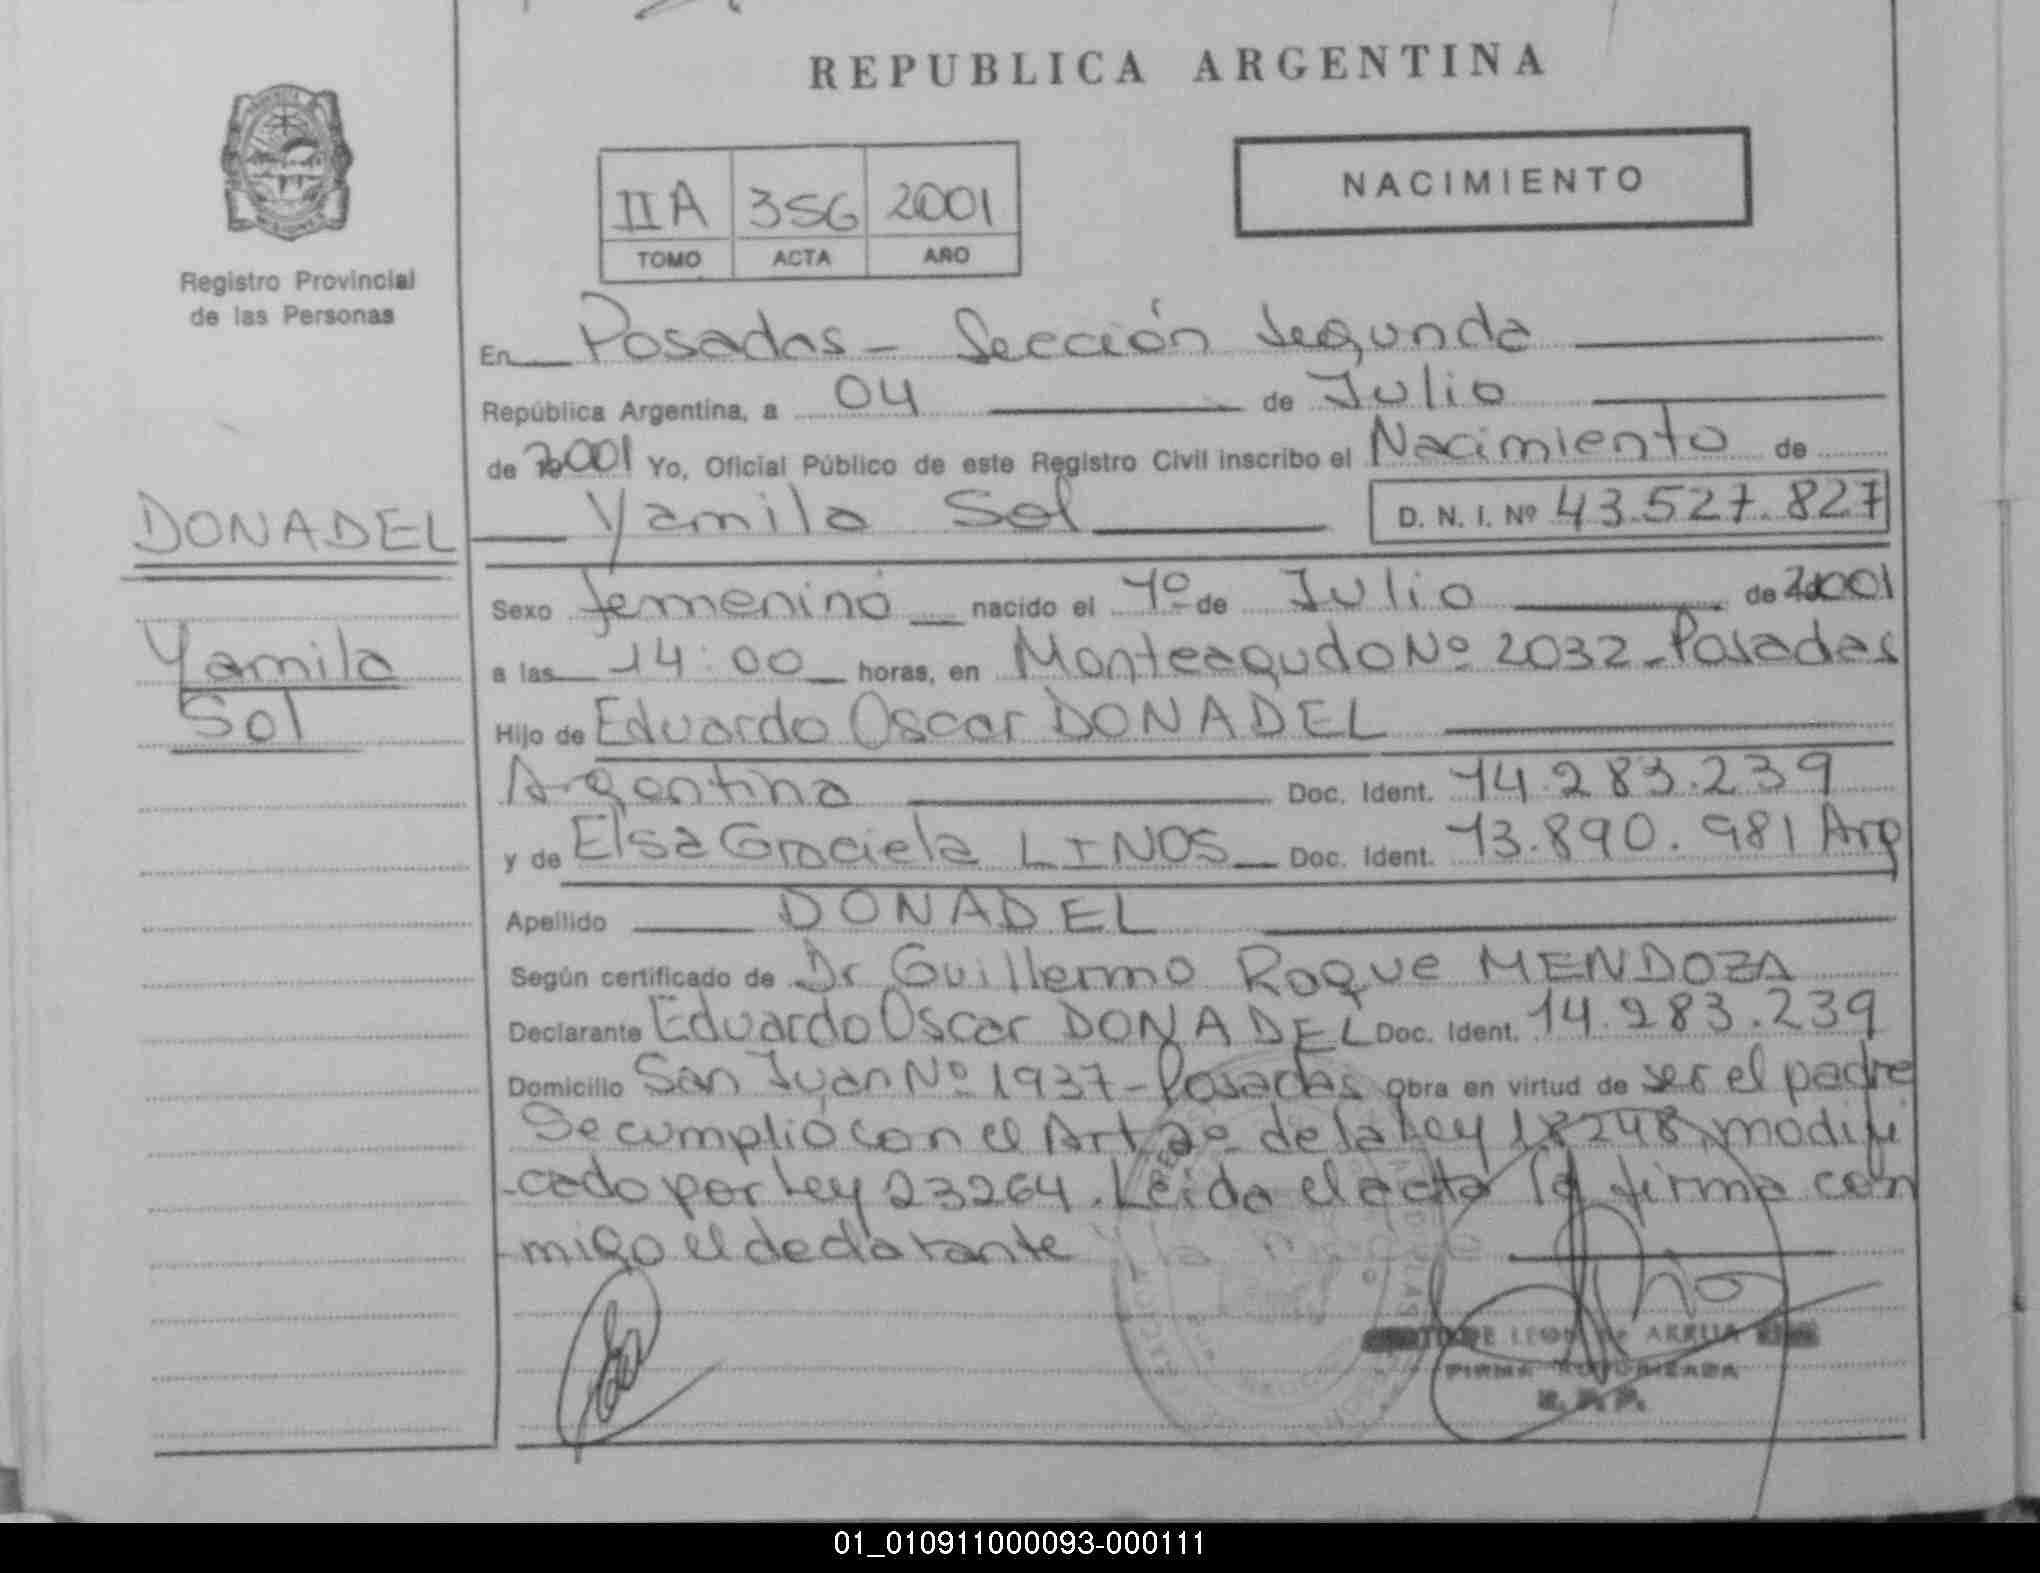 REPUBLICA ARGENTINA
NACIMIENTO
IIA 356 2001
TOMO ACTA AÑO
Registro Provincial
de las Personas
En Posadas - Sección Segunda
República Argentina, a 04 de Julio
de 2001 Yo, Oficial Público de este Registro Civil inscribo el Nacimiento de
Yamila Sol D. N. I. Nº 43.527.827
DONADEL
Yamila
Sol
Sexo femenino nacido el 1º de Julio de 2001
a las 14:00 horas, en Monteagudo Nº 2032 - Posadas
Hijo de Eduardo Oscar DONADEL
Argentina Doc. Ident. 14.283.239
y de Elsa Graciela LINOS Doc. Ident. 13.890.981 Arg
Apellido DONADEL
Según certificado de Dr Guillermo Roque MENDOZA
Declarante Eduardo Oscar DONADEL Doc. Ident. 14.283.239
Domicilio San Juan Nº 1937 - Posadas Obra en virtud de ser el padre
Se cumplió con el Art 2º de la Ley 18248, modifi
cado por Ley 23264. Leida el acta la firma con
migo el declarante
DE LEON de ARRUA
FIRMA AUTORIZADA
R. P. P.
01_010911000093-000111